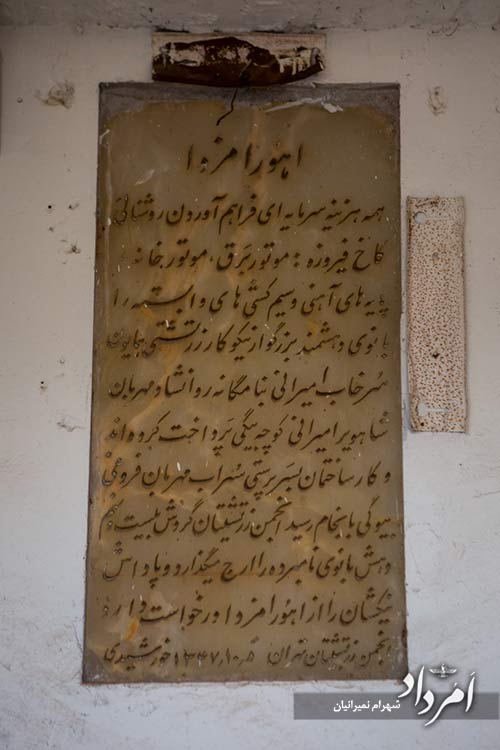 اهورامزدا
همه هزینه سرمایه ای فراهم آوردن روشنائی
کاخ فیروزه : موتور برق ، موتور خانه
پایه های آهنی و سیم کشی های وابسته را
بانوی دهشمند بزرگوار نیکوکار زرتشتی همایون
سرخاب امیرانی بنامگانه روانشاد مهربان
شاهویر امیرانی کوچه بیگی پرداخت کرده اند
و کار ساختمان بسرپرستی سهراب مهربان فرودی
بیوگی بانجام رسید انجمن زرتشتیان گروش بیست و نهم
دهش بانوی نامبرده را ارج میگذارد و پاداش
نیکشان را از اهورامزدا درخواست دارد
انجمن زرتشتیان تهران ۱۳۴۷٫۱۰٫۵ خورشیدی
اَمُرداد
شهرام نمیرانیان